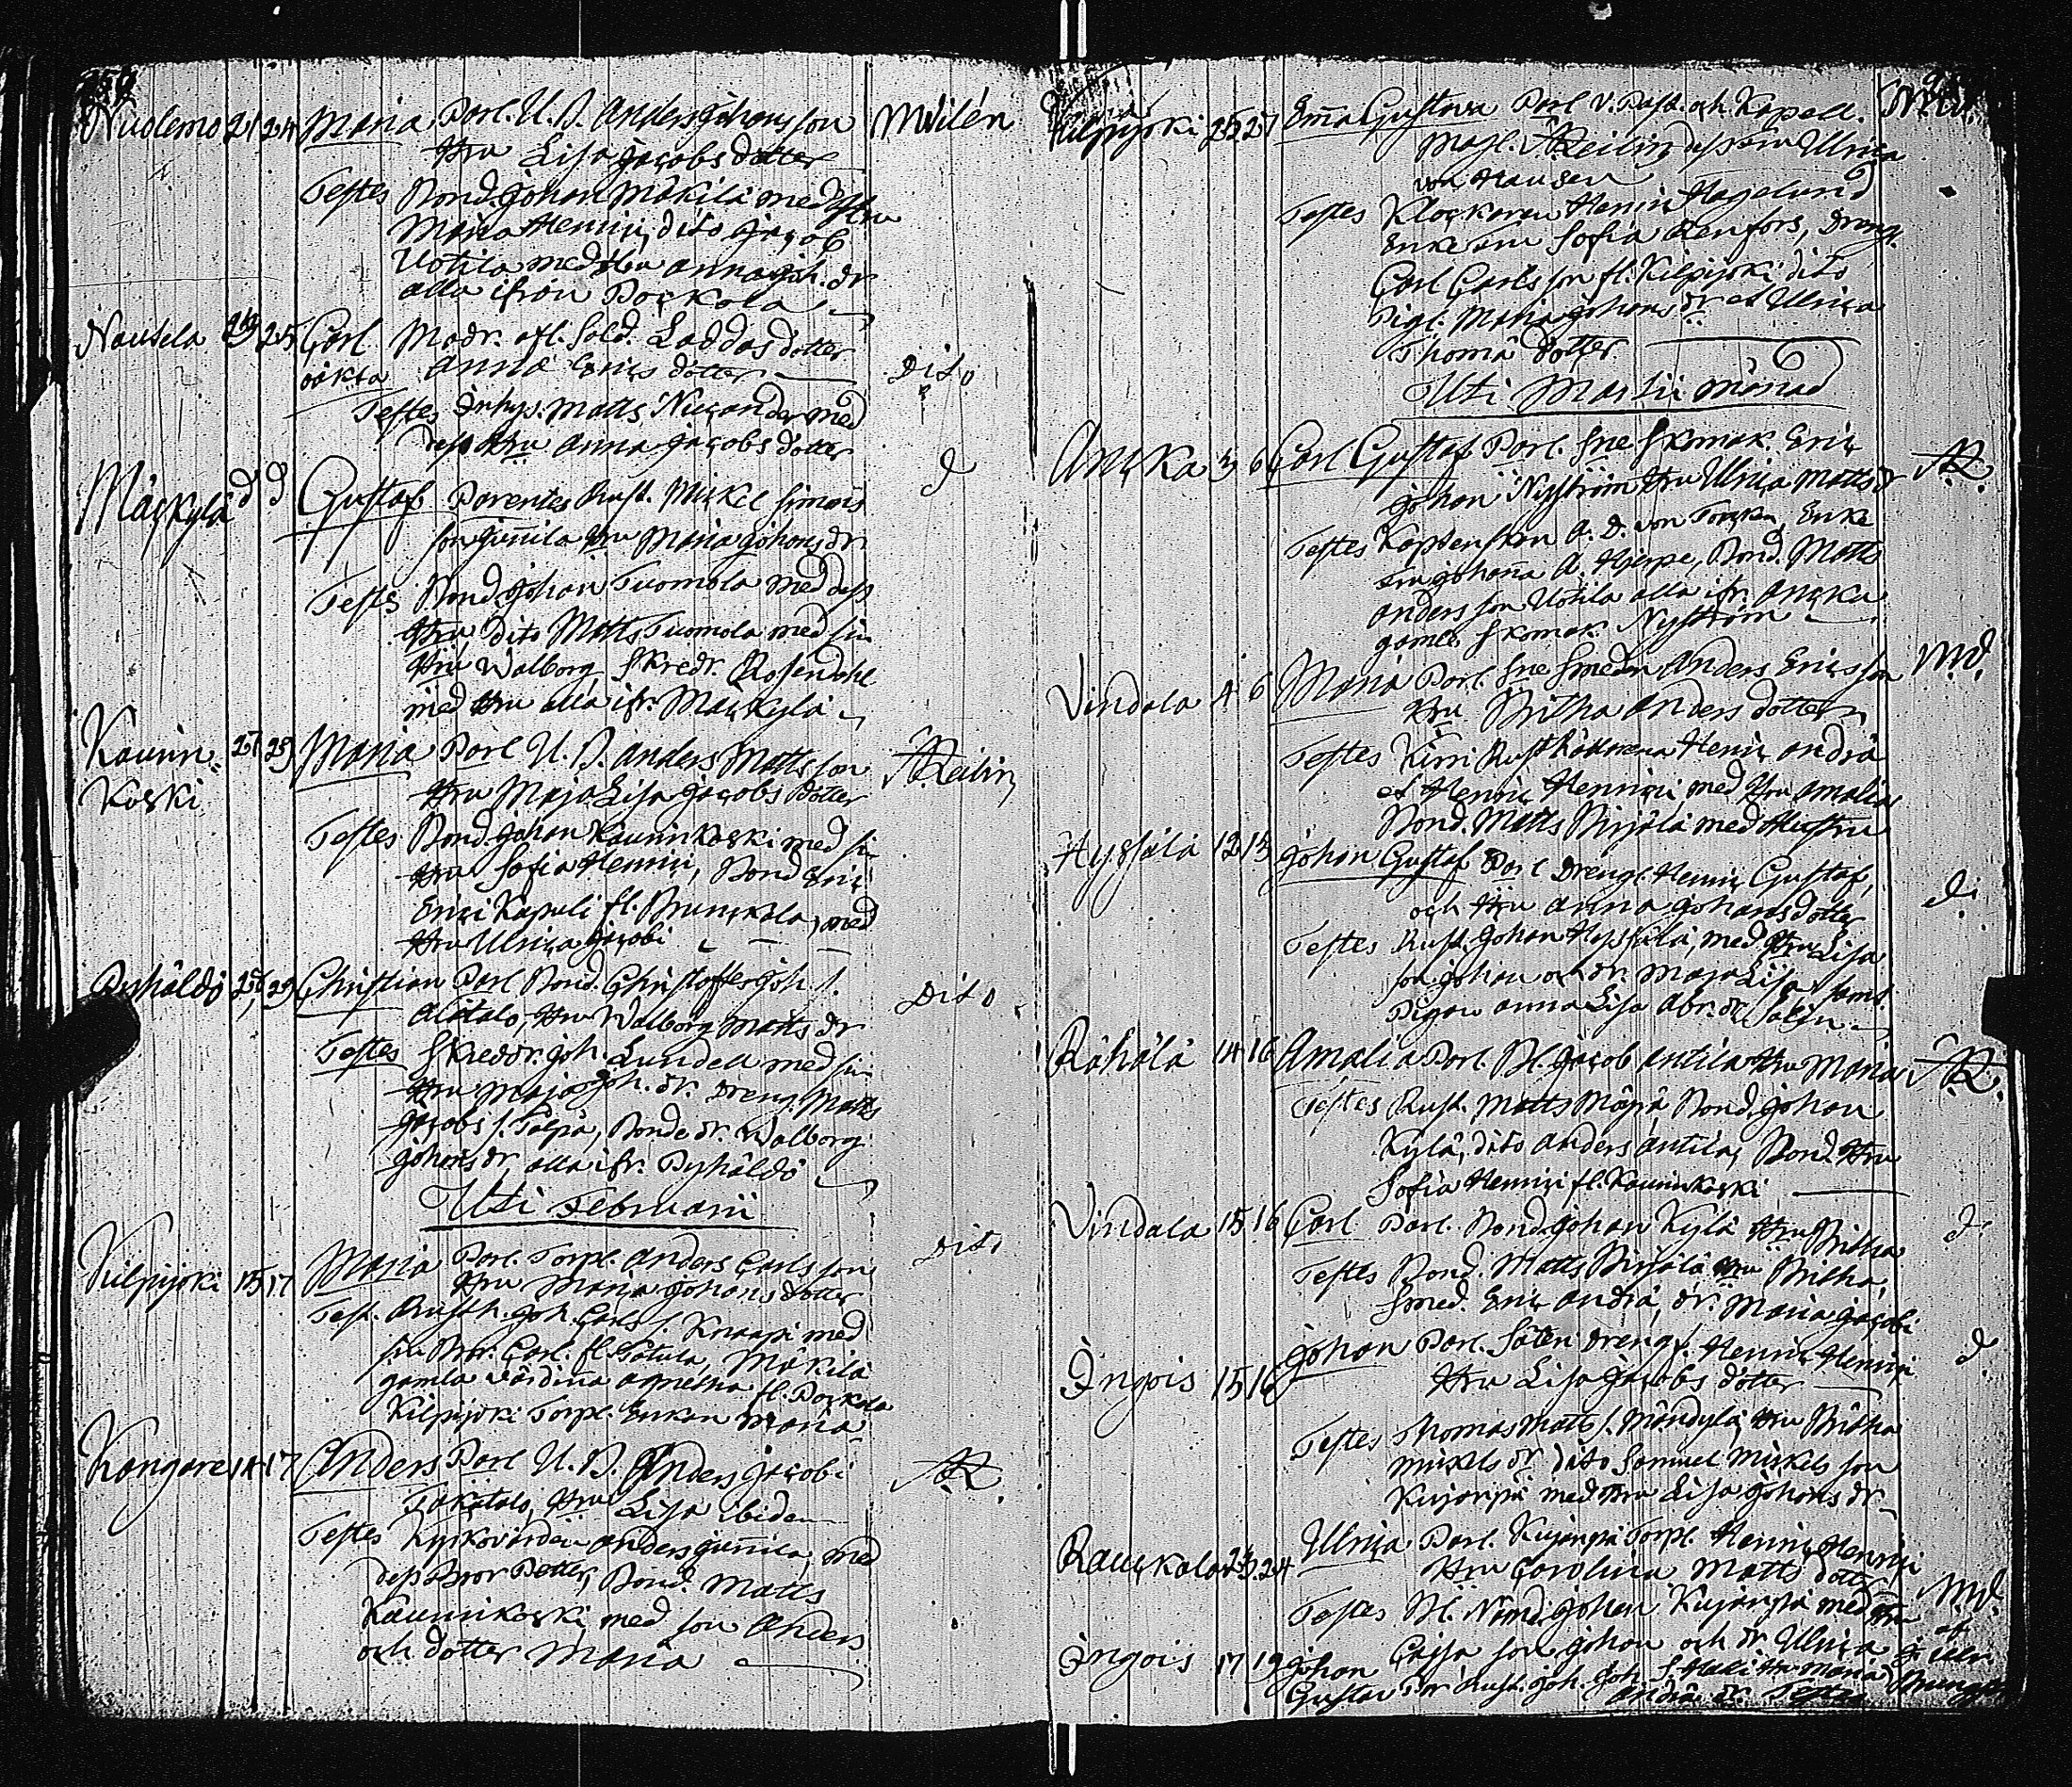 Nuolemo 21 24 Maria Parl. U. B. Anders Johans son M Vilén
Hru Lisa Jacobs dotter
Testes Bond. Johan Mäkilä med Hru
Maria Henrici, dito Jacob
Uotila med Hru Anna Joh. dr
alla ifrån Porkola
Nautela 23 25 Carl Modr. afl. Sold. Laddas dotter
oäkta Anna Erics dotter Dito
Testes Inhys. Matts Nicander med
dess Hru Anna Jacobs dotter
Mäskylä d d Gustaf Parentes Rust. Mickel Simons d
son Junnila Hru Maria Johans dr
Testes Bond. Johan Tuomola med dess
Hru dito Matts Tuomola med sin
Hru Walborg Skredr. Rosendahl
med Hru alla ifr. Mäskylä
Kaunin- 27 29 Maria Parl U. B. Anders Matts son A Reilin
koski Hru Maja Lisa Jacobs dotter
Testes Bond. Johan Kauninkoski med sin
Hru Sofia Henrici, Bond Eric
Erici Kapuli fl. Brunckala, med
Hru Ulrica Jacobi
Pyhäldö 28 29 Christian Parl Bond. Christoffer Joh. s.
Alitalo, Hru Walborg Matts dr Dito
Testes Skreddr. Joh. Lundell med sin
Hru Maja Joh. dr. Dreng. Matts
Jacobs s. Talpa, Bonde dr. Walborg
Johans dr alla ifr. Pyhäldö
Uti Februarii
Kilpijoki 15 17 Maria Parl. Torp. Anders Carls son Dito
Hru Maria Johans dotter
Test. Rusth. Joh. Carls s. Knaapi med
sin Bror Carl fl. Tåtula, Mäkilä
gamla värdina Agnetha fl. Porkola
Kilpijoki Torp. Enkan Maria
Kangare 14 17 Anders Parl U. B. Anders Jacobi AR.
Takatalo, Hru Lisa ibidem
Testes Kyrkovärden Anders Junnila, med
dess Bror Petter, Bond. Matts
Kauninkoski med son Anders
och dotter Maria
Kilpijoki 25 27 Emma Gustava Parl V. Past. och Kapell.
Magr. A Reilin dess Fru Ulrica
von Hausen
Testes Klockaren Henric Hagelund
Enke Fru Sofia Renfors, Dreng.
Carl Carls son fl. Kilpijoki dito
Pigl. Maria Johans dr et Ulrica
Thomä dotter
Uti Martii månad
Anska 3 6 Carl Gustaf Parl. Sne Skomak. Eric AR.
Johan Nyström Hru Ulrica Matts dr
Testes Kaptenskan A. D. von Torcken, Enke
Fru Johanna A. Hjerpe, Bond. Matts
Anders son Uotila alla ifr. Anska
gamle Skomak. Nyström
Vindala 4 6 Maria Parl. Sne Smeden Anders Erics son M.V.
Hru Britha Anders dotter
Testes Rusthållarena Henric Andrä
et Henric Henrici med Hru Amalia
Bond. Matts Birjälä med Hustru
Hyssälä 12 13 Johan Gustaf Parl Drengl. Henric Gustaf,
och Hru Anna Johans dotter d:
Testes Rust. Johan Hyssälä, med Hru Lisa
son Johan och dr. Maja Lisa samt
Pigan Anna Lisa Abr. dr
Rähälä 14 16 Amalia Parl. Bl. Jacob Antila Hru Maria AR.
Testes Rust. Matts Bond. Johan
Kylä, dito Anders Antila, Bond. Hru
Sofia Henrici fl. Kauninkoski
Vindala 15 16 Carl Parl. Bond. Johan Kylä Hru Britha d:
Testes Bond. Matts Birjälä Hru Britha
Smed. Eric Andrä, dr. Maria Jacobi
Ingois 15 16 Johan Parl. Säteri Dreng. Henric Henrici d
Hru Lisa Jacobs dotter
Testes Thomas Matts s. Hru Britha
Mickels dr dito Samuel Mickels son
Kujanpä med Hru Lisa Johans dr
Rauckala 23 24 Ulrica Parl. Kujanpä Torp. Henric Henrici
Hru Carolina Matts dotter M.V.
Testes Bl. Nämd. Johan Kujanpä med Hru
Caisa son Johan och dr Ulrica
Ingois 17 19 Johan
Gustav Rust. Joh. Joh. s. Hru Maria
Andrä dr. Testes